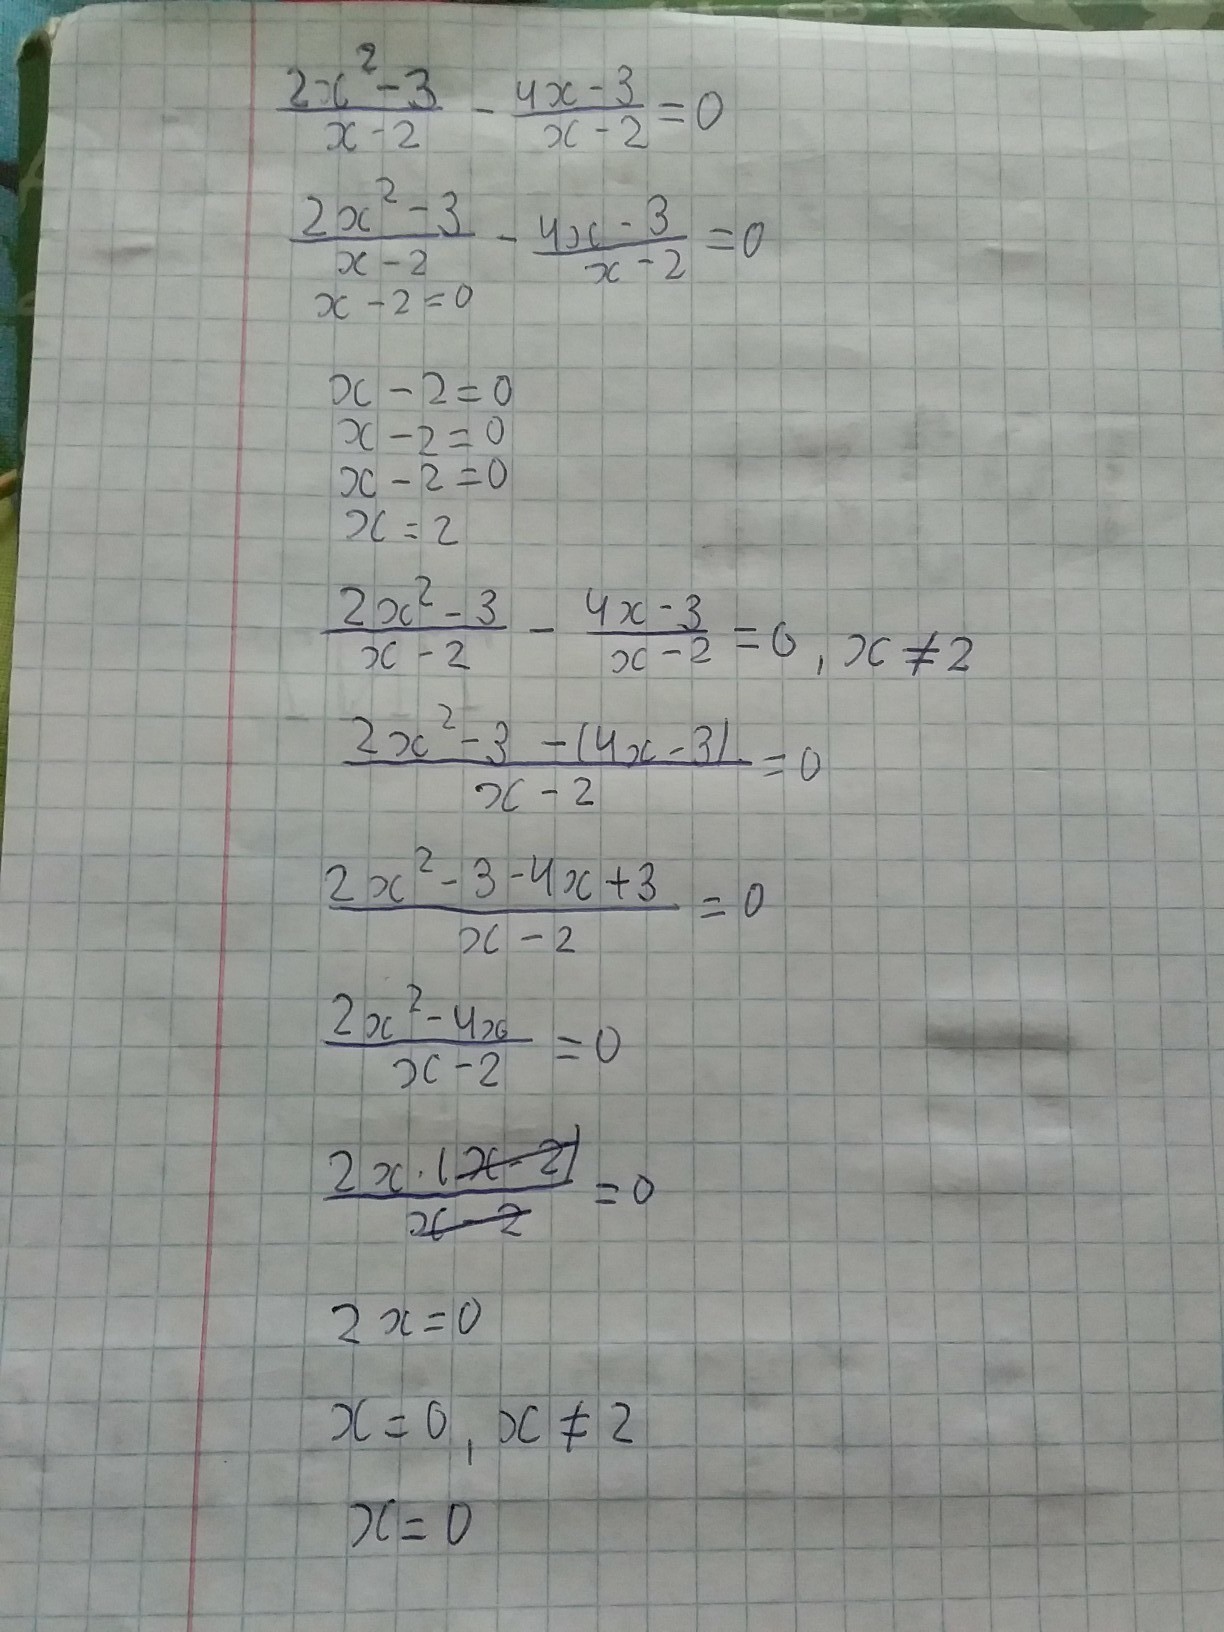 (2x² - 3)/(x - 2) - (4x - 3)/(x - 2) = 0
(2x² - 3)/(x - 2) - (4x - 3)/(x - 2) = 0
x - 2 = 0
x - 2 = 0
x - 2 = 0
x - 2 = 0
x = 2
(2x² - 3)/(x - 2) - (4x - 3)/(x - 2) = 0, x ≠ 2
(2x² - 3 - (4x - 3))/(x - 2) = 0
(2x² - 3 - 4x + 3)/(x - 2) = 0
(2x² - 4x)/(x - 2) = 0
(2x · (x - 2))/(x - 2) = 0
2x = 0
x = 0, x ≠ 2
x = 0